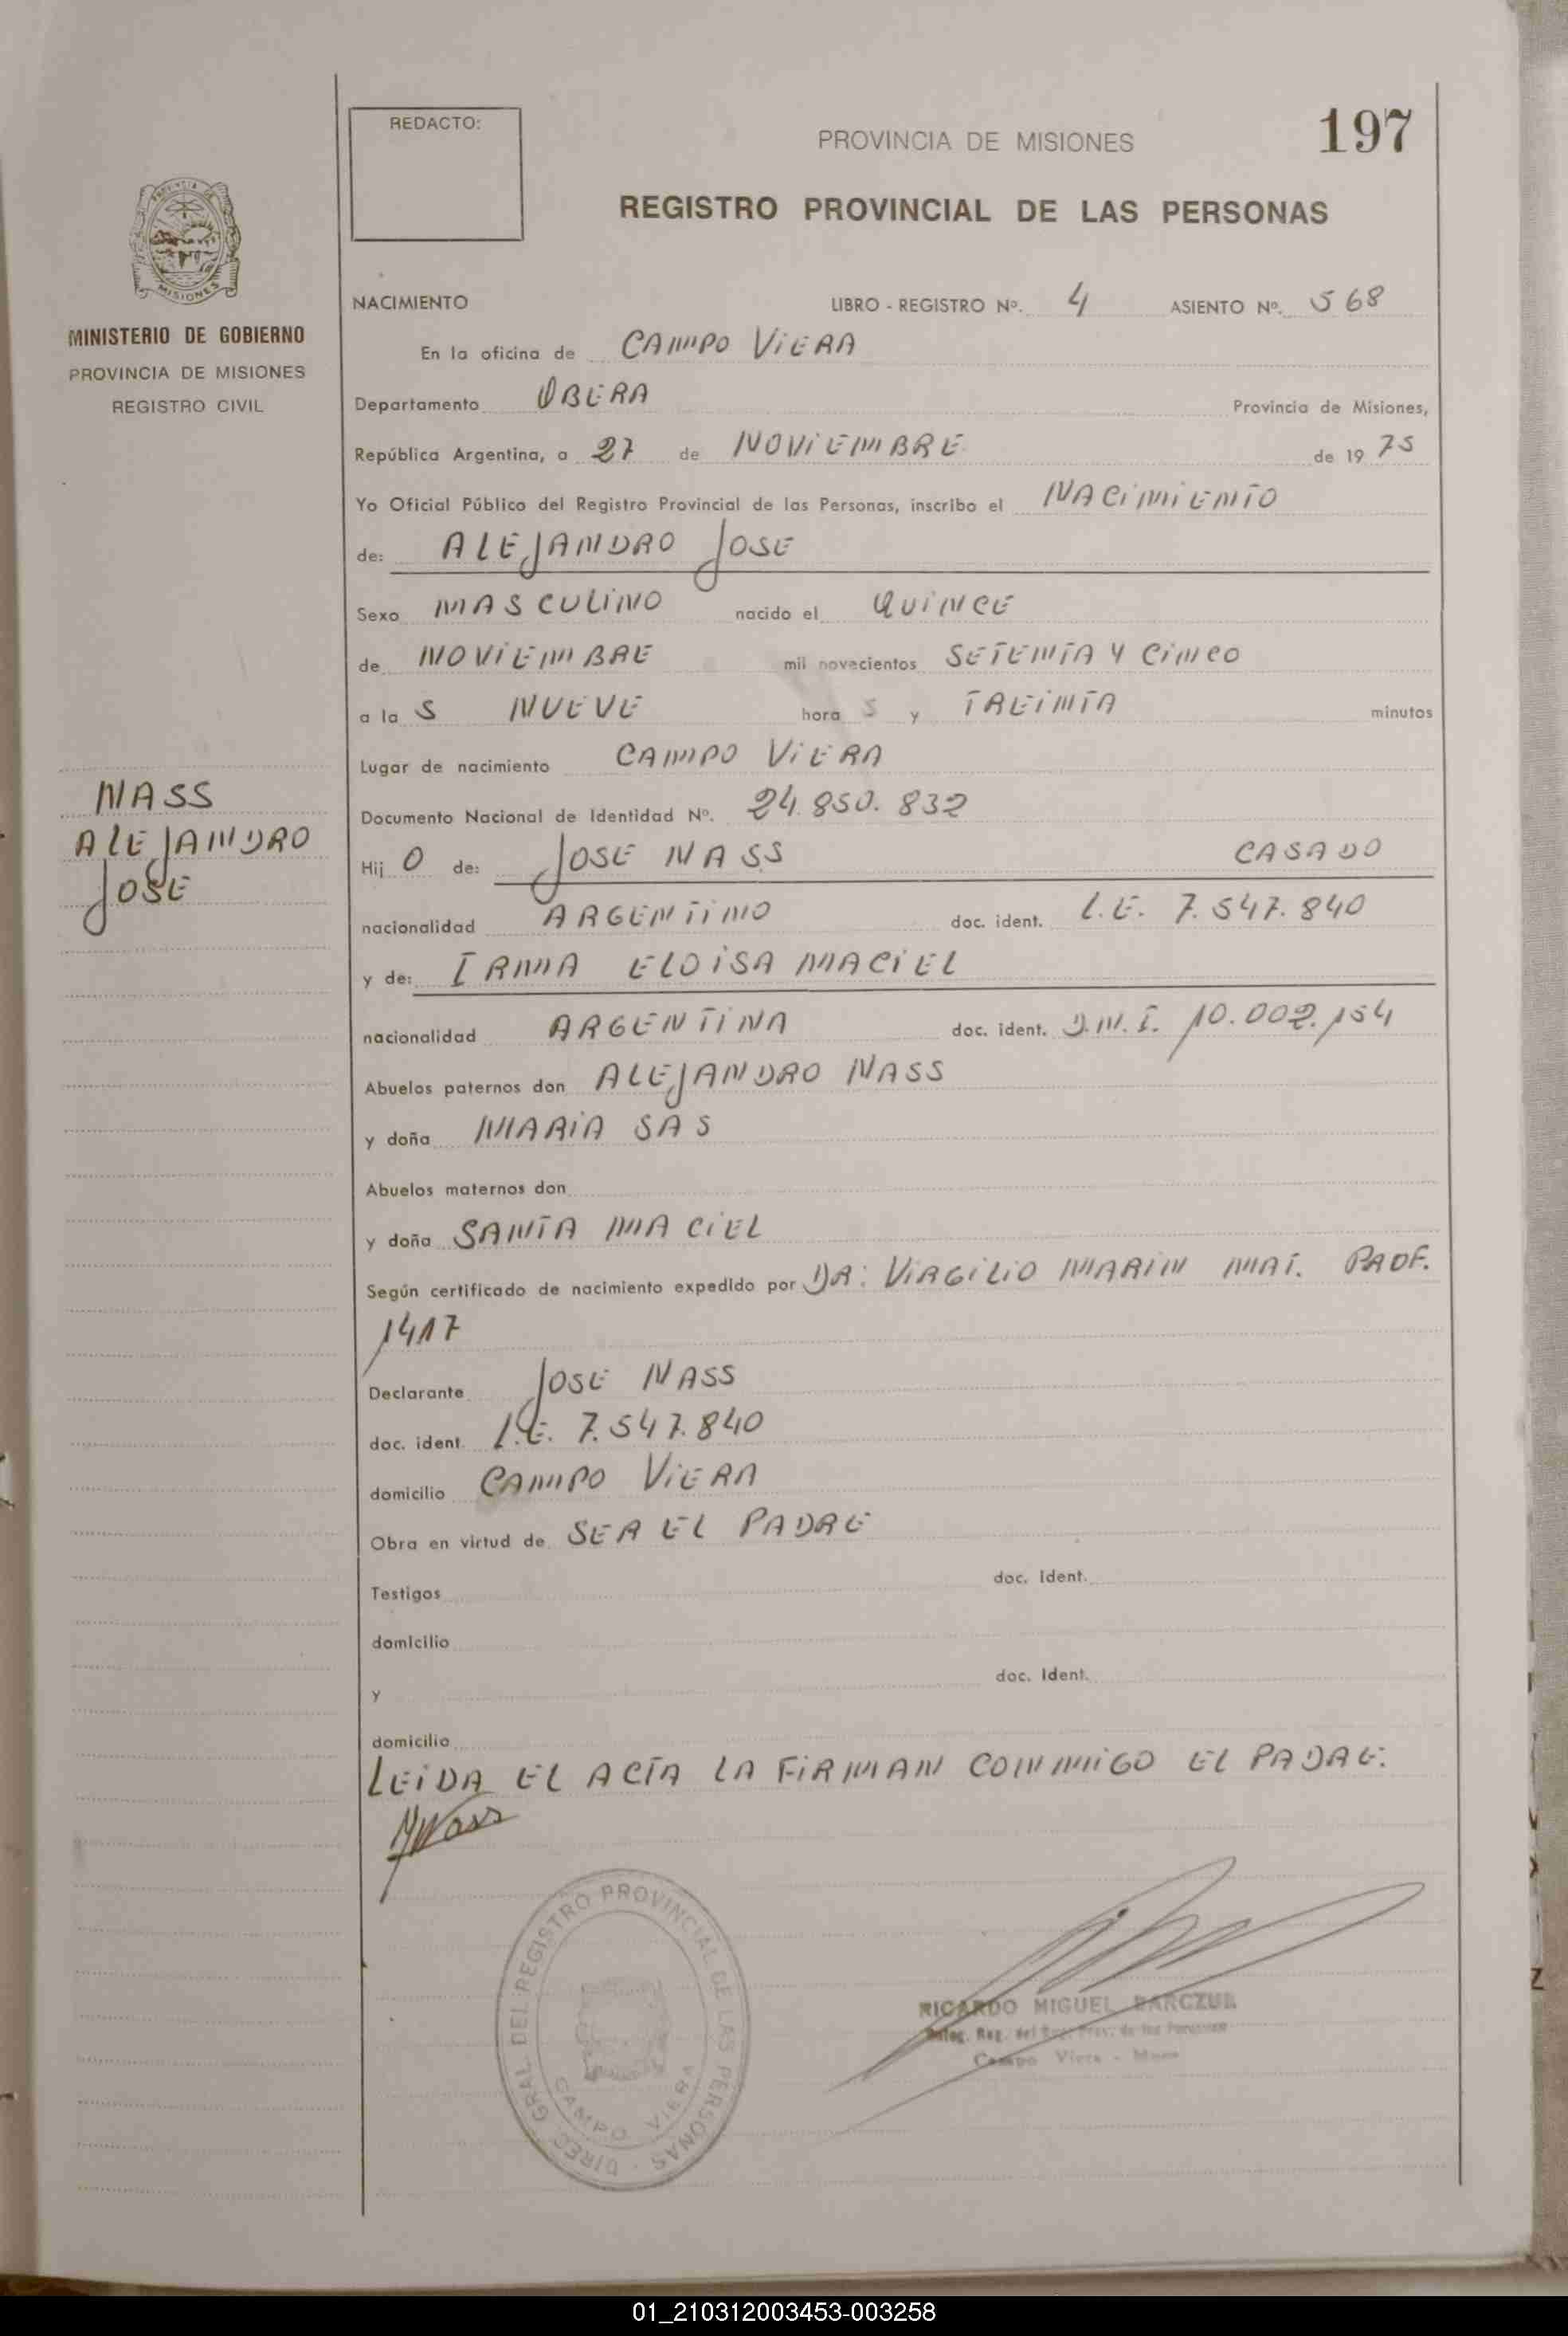 REDACTO:
PROVINCIA DE MISIONES
197
REGISTRO PROVINCIAL DE LAS PERSONAS
MISIONES
MINISTERIO DE GOBIERNO
PROVINCIA DE MISIONES
REGISTRO CIVIL
NASS
ALEJANDRO
JOSE
NACIMIENTO LIBRO - REGISTRO Nº. 4 ASIENTO Nº. 568
En la oficina de CAMPO VIERA
Departamento OBERA Provincia de Misiones,
República Argentina, a 27 de NOVIEMBRE de 19 75
Yo Oficial Público del Registro Provincial de las Personas, inscribo el NACIMIENTO
de: ALEJANDRO JOSE
Sexo MASCULINO nacido el QUINCE
de NOVIEMBRE mil novecientos SETENTA Y CINCO
a la S NUEVE hora S y TREINTA minutos
Lugar de nacimiento CAMPO VIERA
Documento Nacional de Identidad Nº. 24.850.832
Hij O de: JOSE NASS CASADO
nacionalidad ARGENTINO doc. ident. L.E. 7.547.840
y de: IRMA ELOISA MACIEL
nacionalidad ARGENTINA doc. ident. D.N.I. 10.002.154
Abuelos paternos don ALEJANDRO NASS
y doña MARIA SAS
Abuelos maternos don
y doña SANTA MACIEL
Según certificado de nacimiento expedido por DR: VIRGILIO MARIN MAT. PROF.
1417
Declarante JOSE NASS
doc. ident. L.E. 7.547.840
domicilio CAMPO VIERA
Obra en virtud de SER EL PADRE
Testigos doc. Ident.
domicilio
y doc. Ident.
domicilio
LEIDA EL ACTA LA FIRMAN CONMIGO EL PADRE.
Nass
DIREC. GRAL. DEL REGISTRO PROVINCIAL DE LAS PERSONAS
CAMPO VIERA
RICARDO MIGUEL BARCZUK
Campo Viera
01_210312003453-003258